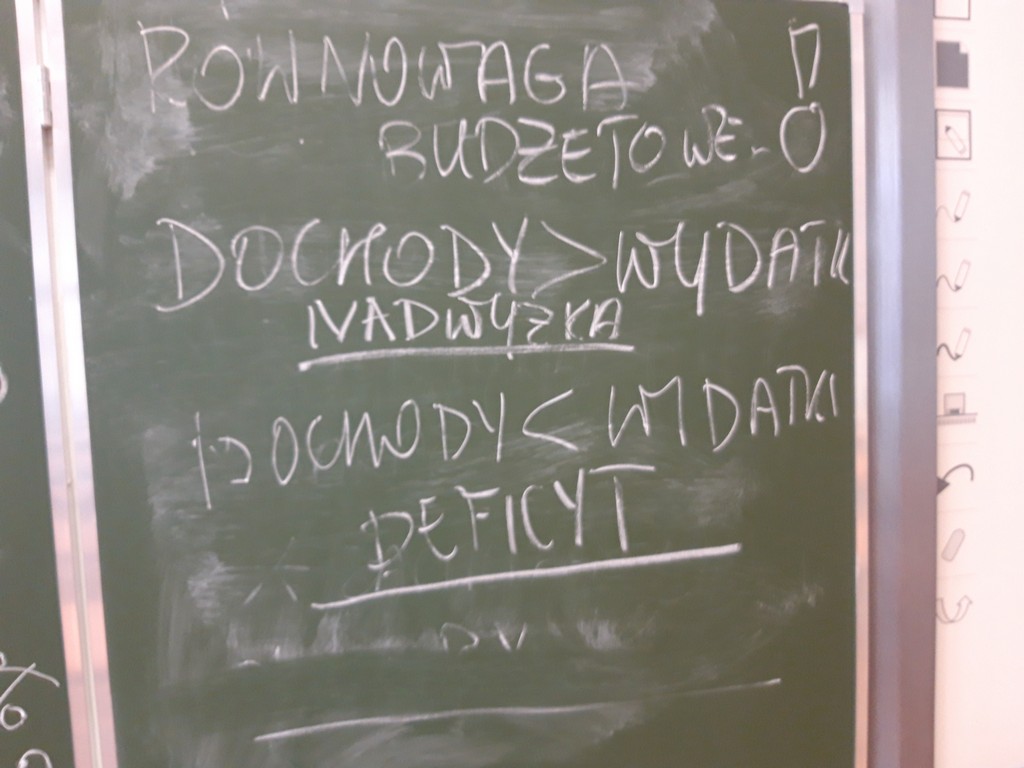 RÓWNOWAGA !
BUDŻETOWE
DOCHODY > WYDATKI
NADWYŻKA
DOCHODY < WYDATKI
DEFICYT
%